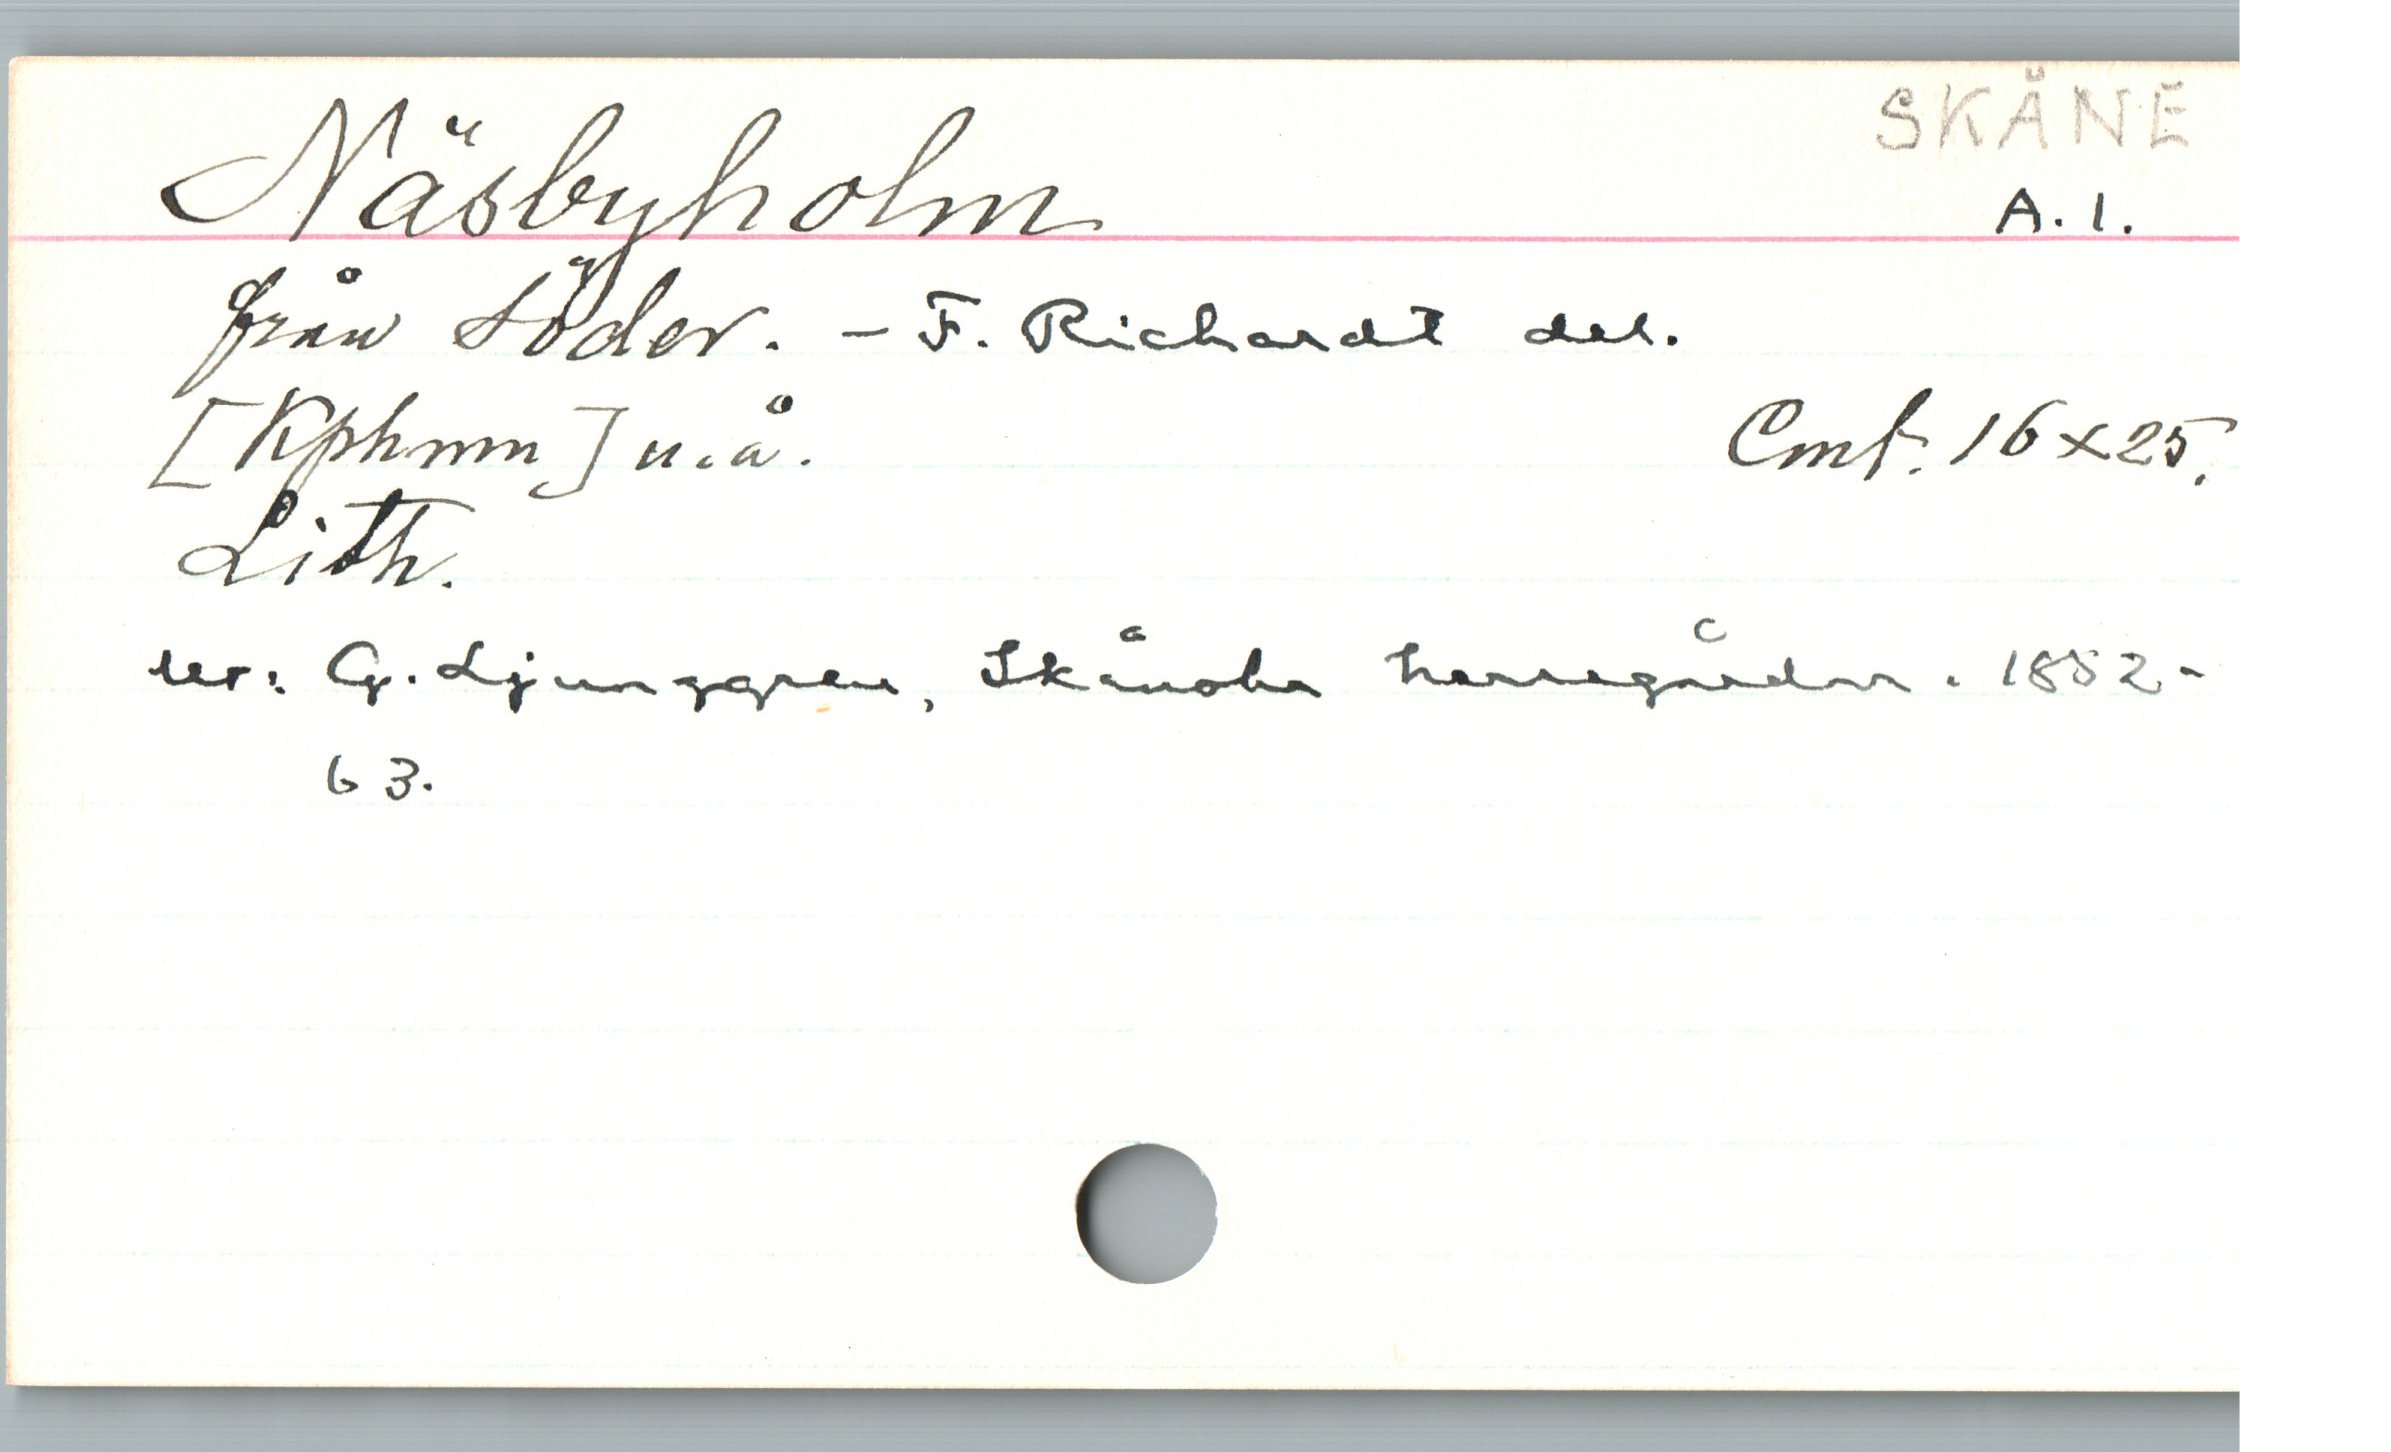 SKÅNE
Näsbyholm
A. 1.
från Söder. - F. Richardt del.
[Kphmn] u.å.
Cmf. 16x25.
Lith.
ur: G. Ljunggren, Skånska herregårdar. 1852-
63.